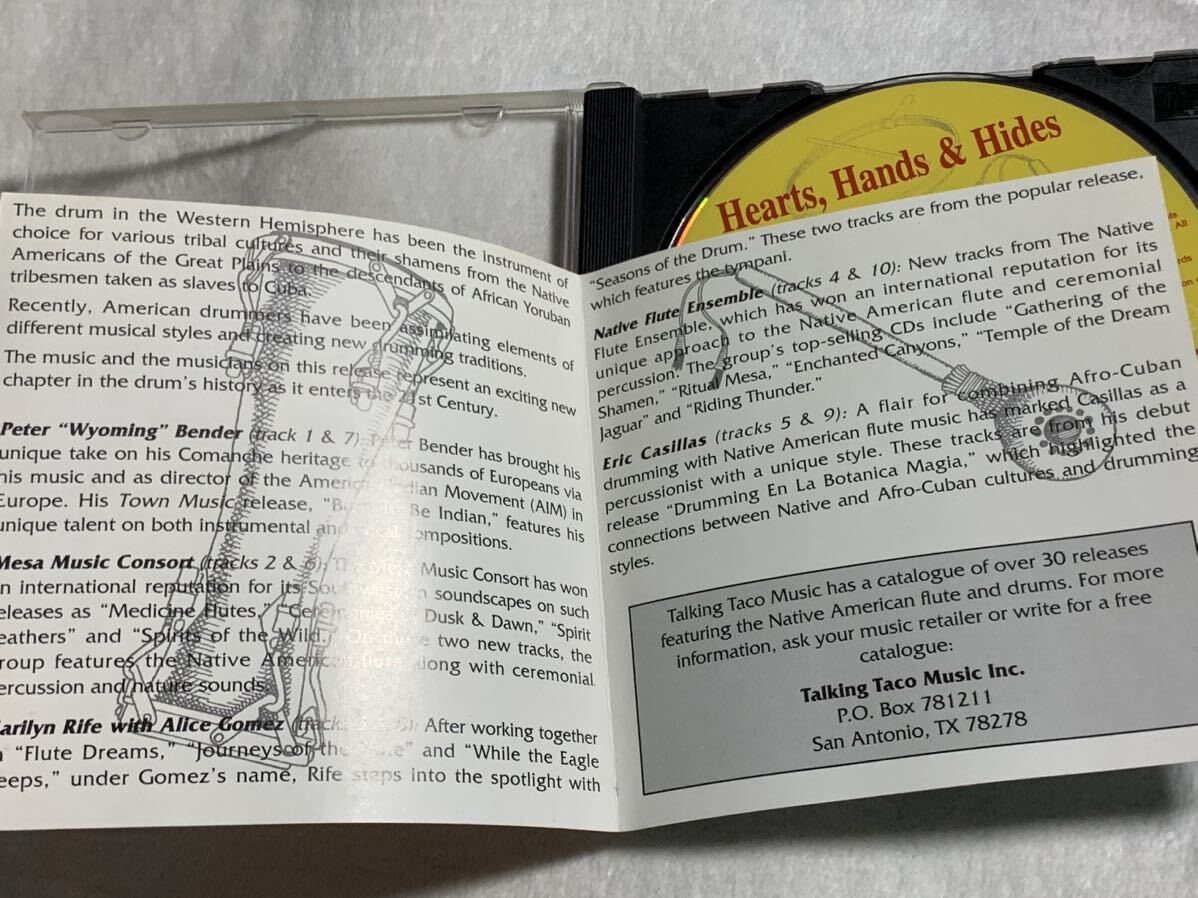 The drum in the Western Hemisphere has been the instrument of
choice for various tribal cultures and their shamens from the Native
Americans of the Great Plains to the descendants of African Yoruban
tribesmen taken as slaves to Cuba.
Recently, American drummers have been assimilating elements of
different musical styles and creating new drumming traditions.
The music and the musicians on this release represent an exciting new
chapter in the drum's history as it enters the 21st Century.
Peter "Wyoming" Bender (track 1 & 7): Peter Bender has brought his
unique take on his Comanche heritage to thousands of Europeans via
his music and as director of the American Indian Movement (AIM) in
Europe. His Town Music release, "Born To Be Indian," features his
unique talent on both instrumental and vocal compositions.
Mesa Music Consort (tracks 2 & 6): The Mesa Music Consort has won
n international reputation for its Southwestern soundscapes on such
eleases as "Medicine Flutes," "Ceremonies of Dusk & Dawn," "Spirit
eathers" and "Spirits of the Wild." On these two new tracks, the
roup features the Native American flute along with ceremonial
ercussion and nature sounds.
arilyn Rife with Alice Gomez (tracks 3 & 8): After working together
"Flute Dreams," "Journeys of the Flute" and "While the Eagle
eeps," under Gomez's name, Rife steps into the spotlight with
Hearts, Hands & Hides
"Seasons of the Drum." These two tracks are from the popular release,
which features the tympani.
Native Flute Ensemble (tracks 4 & 10): New tracks from The Native
Flute Ensemble, which has won an international reputation for its
unique approach to the Native American flute and ceremonial
percussion. The group's top-selling CDs include "Gathering of the
Shamen," "Ritual Mesa," "Enchanted Canyons," "Temple of the Dream
Jaguar" and "Riding Thunder."
Eric Casillas (tracks 5 & 9): A flair for combining Afro-Cuban
drumming with Native American flute music has marked Casillas as a
percussionist with a unique style. These tracks are from his debut
release "Drumming En La Botanica Magia," which highlighted the
connections between Native and Afro-Cuban cultures and drumming
styles.
Talking Taco Music has a catalogue of over 30 releases
featuring the Native American flute and drums. For more
information, ask your music retailer or write for a free
catalogue:
Talking Taco Music Inc.
P.O. Box 781211
San Antonio, TX 78278